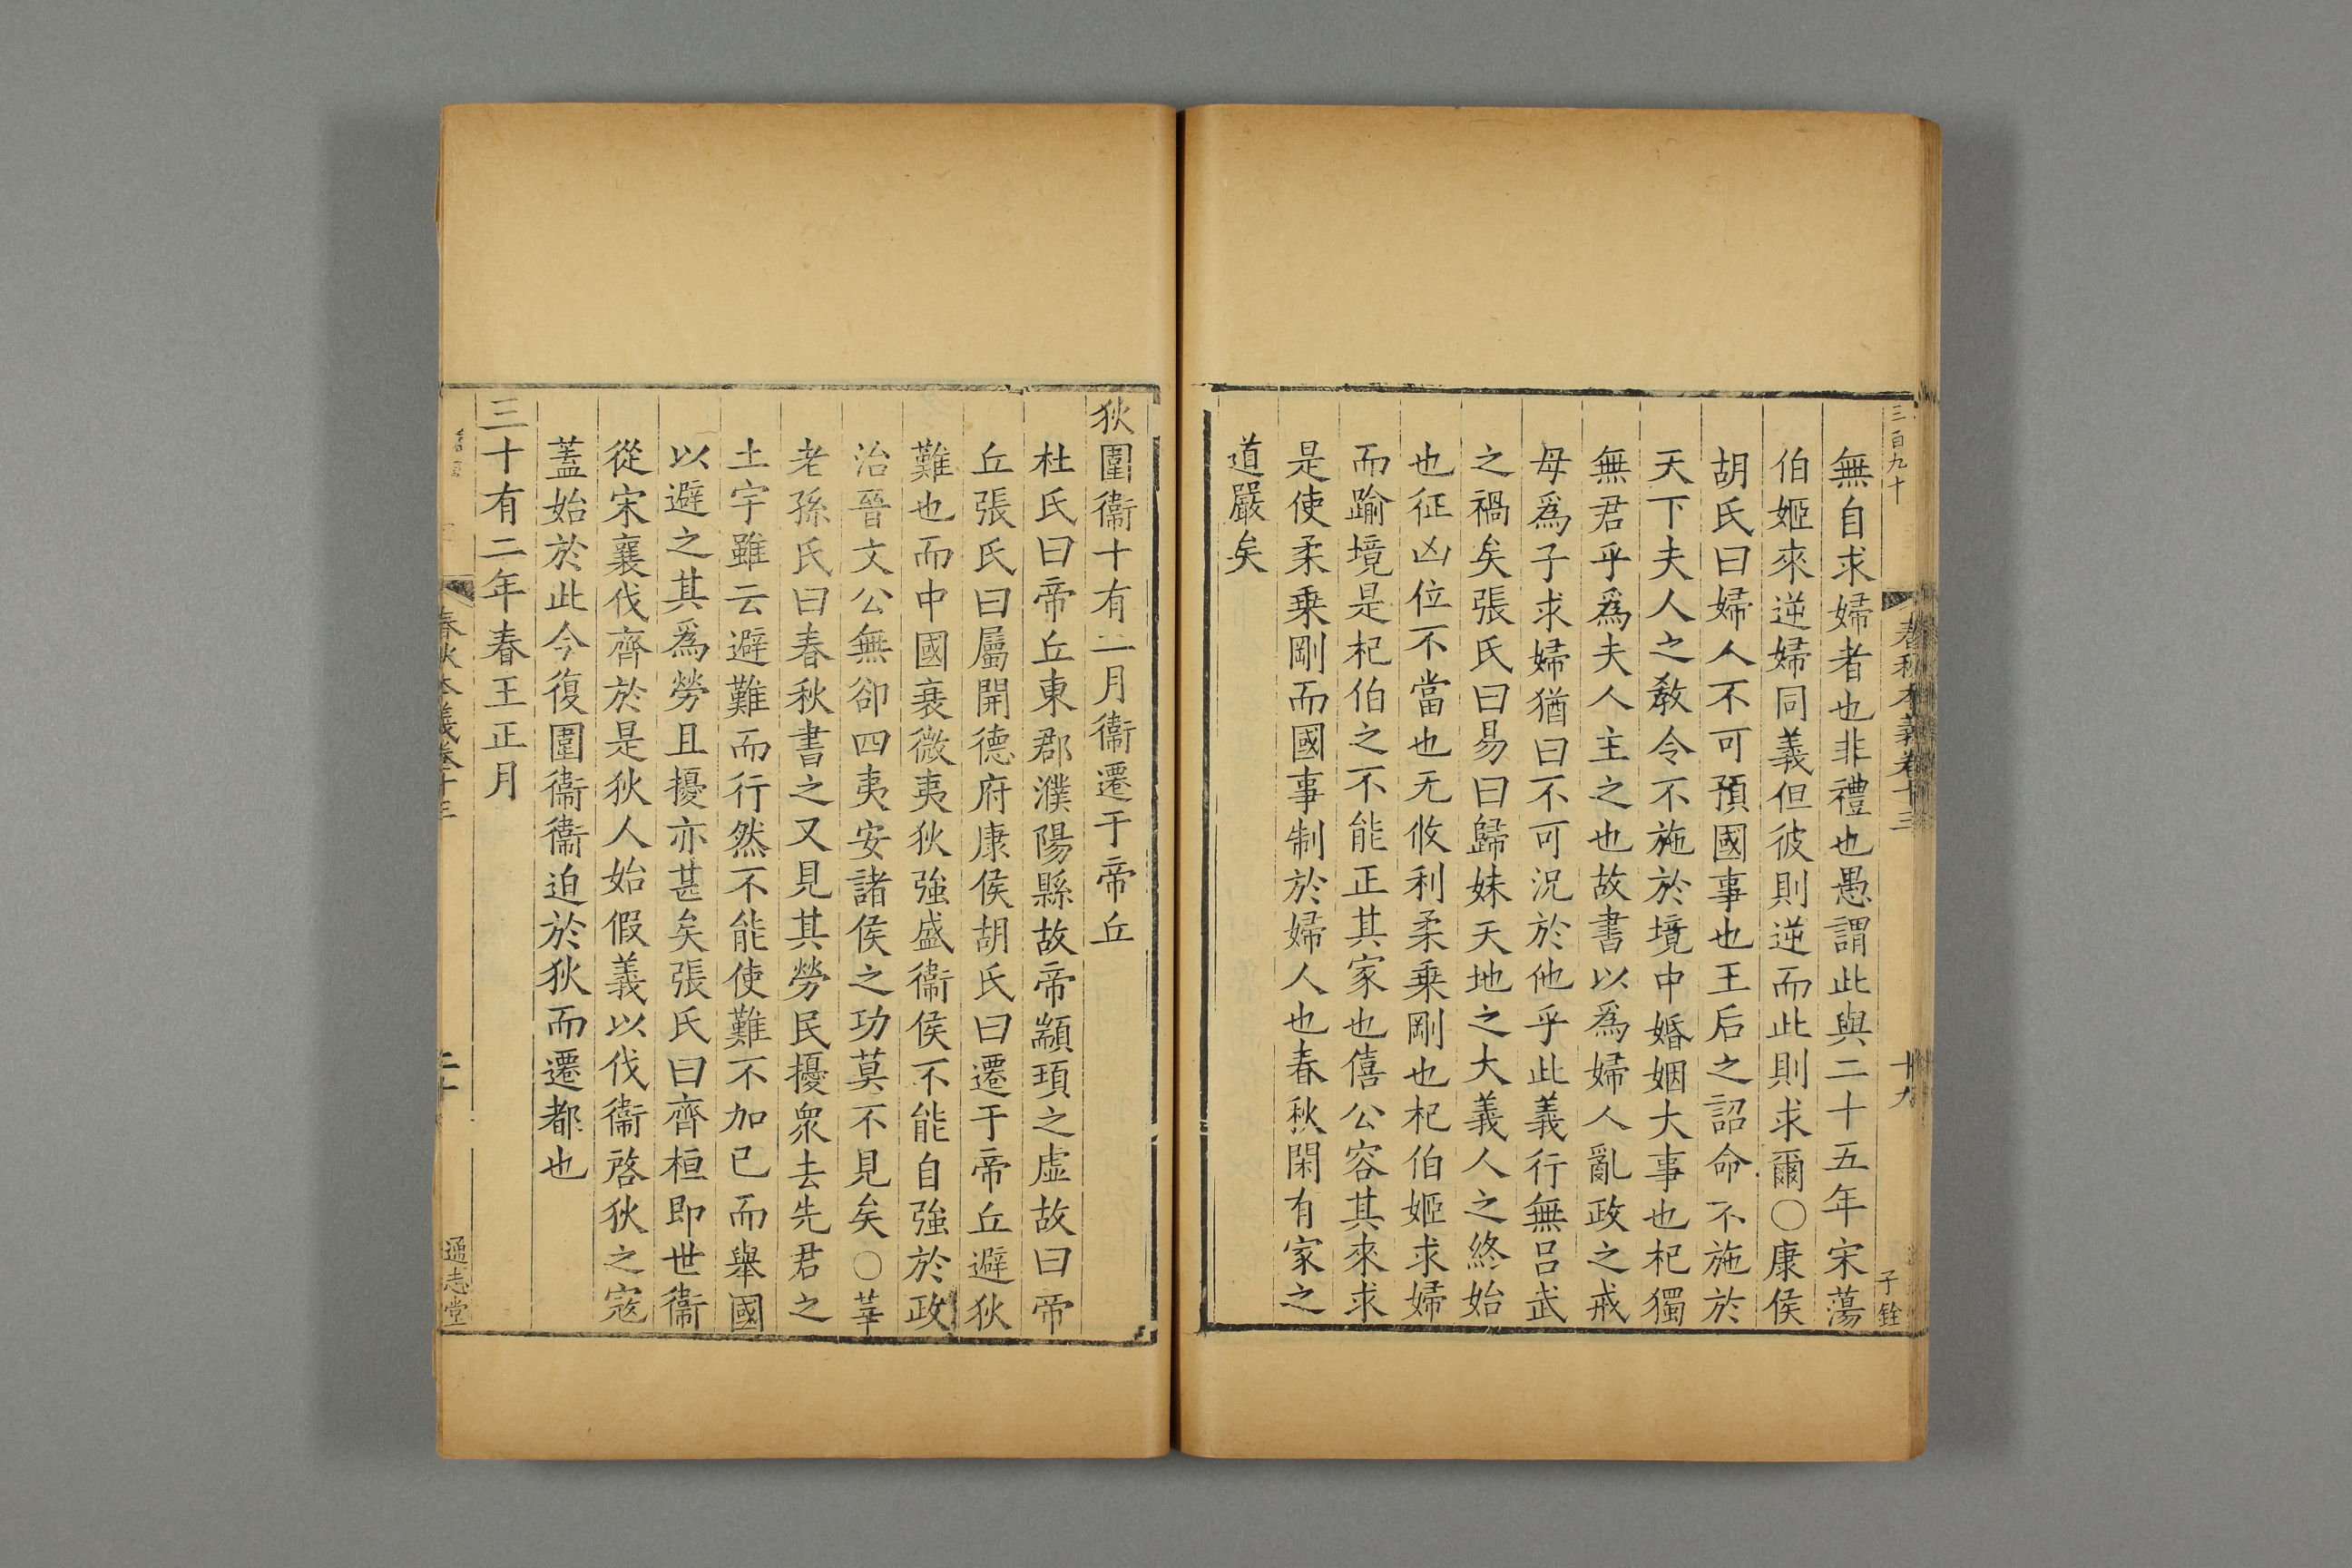 三百九十
春秋本義卷十三
十九
子銓
無自求婦者也非禮也愚謂此與二十五年宋蕩
伯姬來逆婦同義但彼則逆而此則求爾○康侯
胡氏曰婦人不可預國事也王后之詔命不施於
天下夫人之教令不施於境中婚姻大事也杞獨
無君乎爲夫人主之也故書以爲婦人亂政之戒
母爲子求婦猶曰不可況於他乎此義行無呂武
之禍矣張氏曰易曰歸妹天地之大義人之終始
也征凶位不當也无攸利柔乗剛也杞伯姬求婦
而踰境是杞伯之不能正其家也僖公容其來求
是使柔乗剛而國事制於婦人也春秋閑有家之
道嚴矣
狄圍衞十有二月衞遷于帝丘
杜氏曰帝丘東郡濮陽縣故帝顓頊之虛故曰帝
丘張氏曰屬開德府康侯胡氏曰遷于帝丘避狄
難也而中國衰微夷狄強盛衞侯不能自強於政
治晉文公無卻四夷安諸侯之功莫不見矣○莘
老孫氏曰春秋書之又見其勞民擾衆去先君之
土宇雖云避難而行然不能使難不加已而舉國
以避之其爲勞且擾亦甚矣張氏曰齊桓即世衞
從宋襄伐齊於是狄人始假義以伐衞啓狄之寇
蓋始於此今復圍衞衞迫於狄而遷都也
三十有二年春王正月
春秋本義卷十三
二十
通志堂